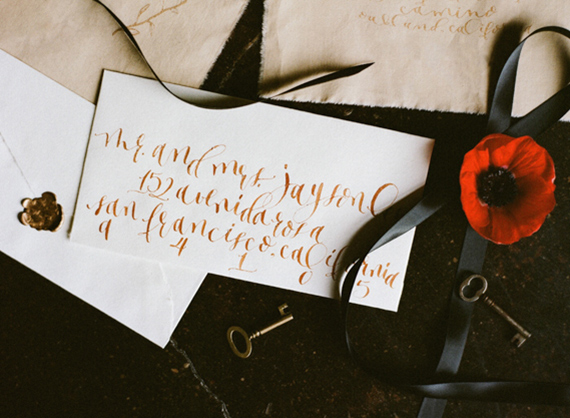 camino
oakland. california
mr. and mrs. jayson
152 avenida rosa
san francisco. california
9 4 1 0 5